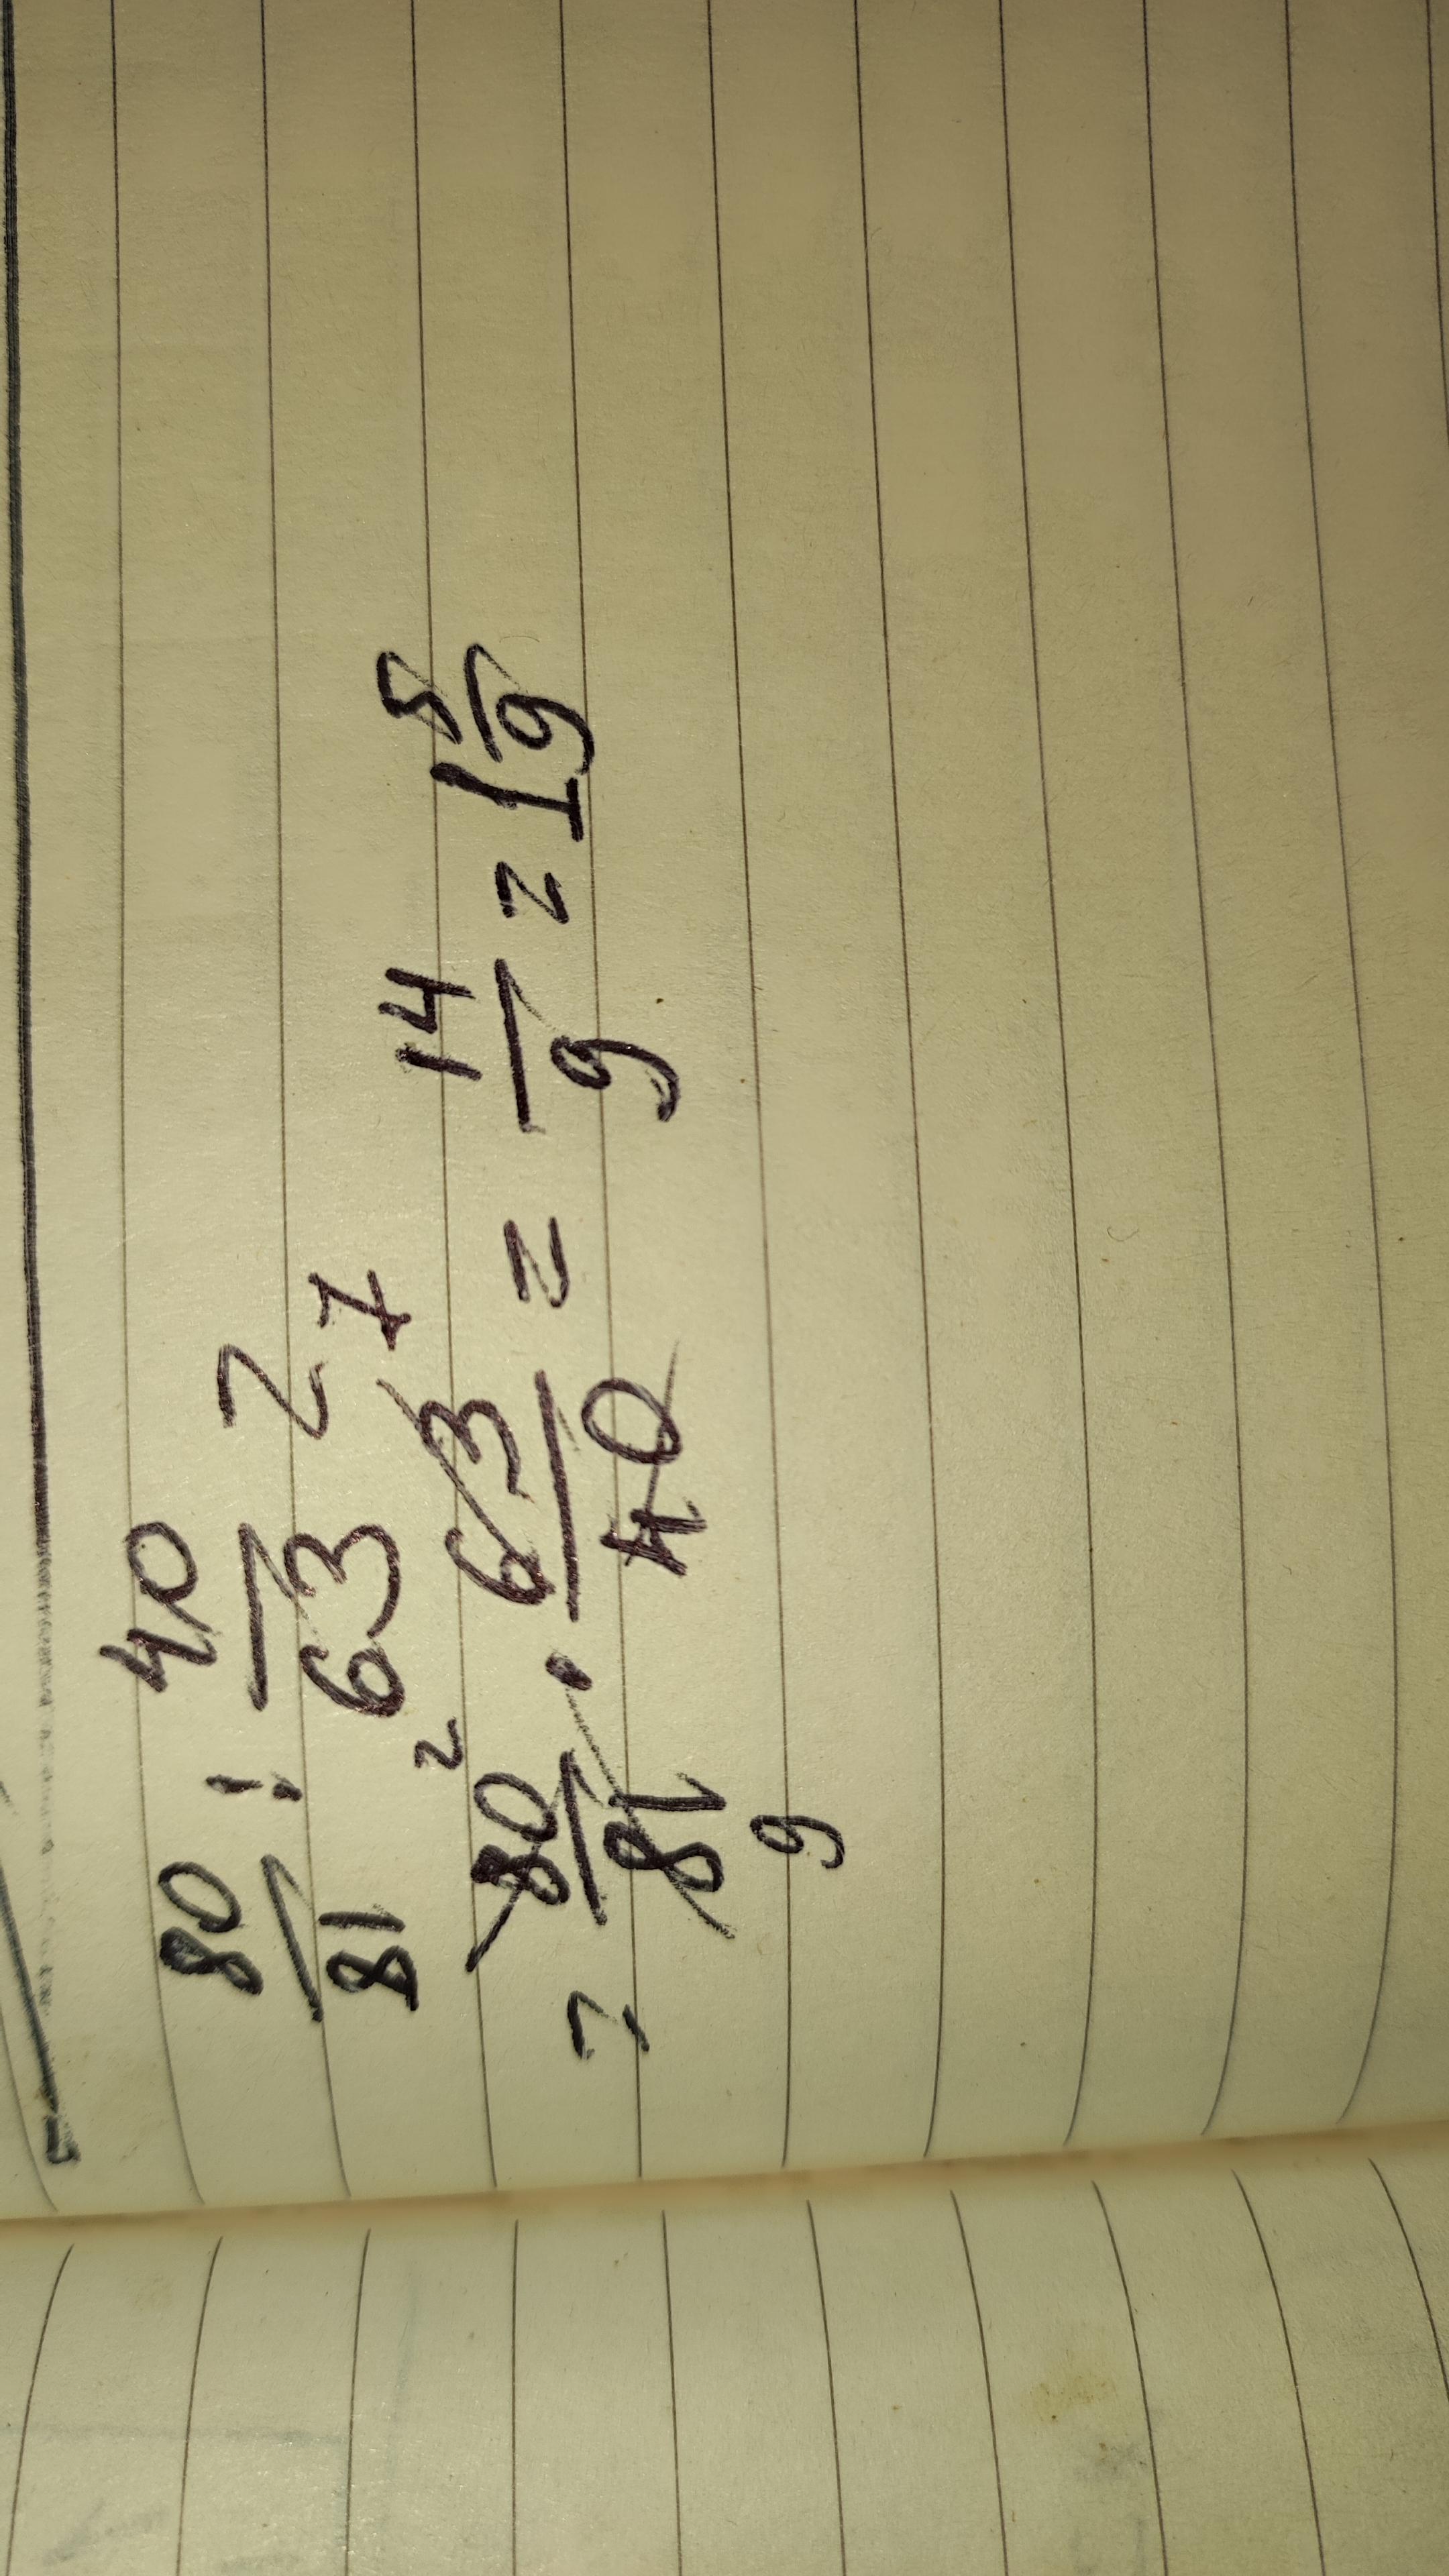 80/81 : 40/63 =
= 80/81 · 63/40 = 14/9 = 1 5/9
2 7
9